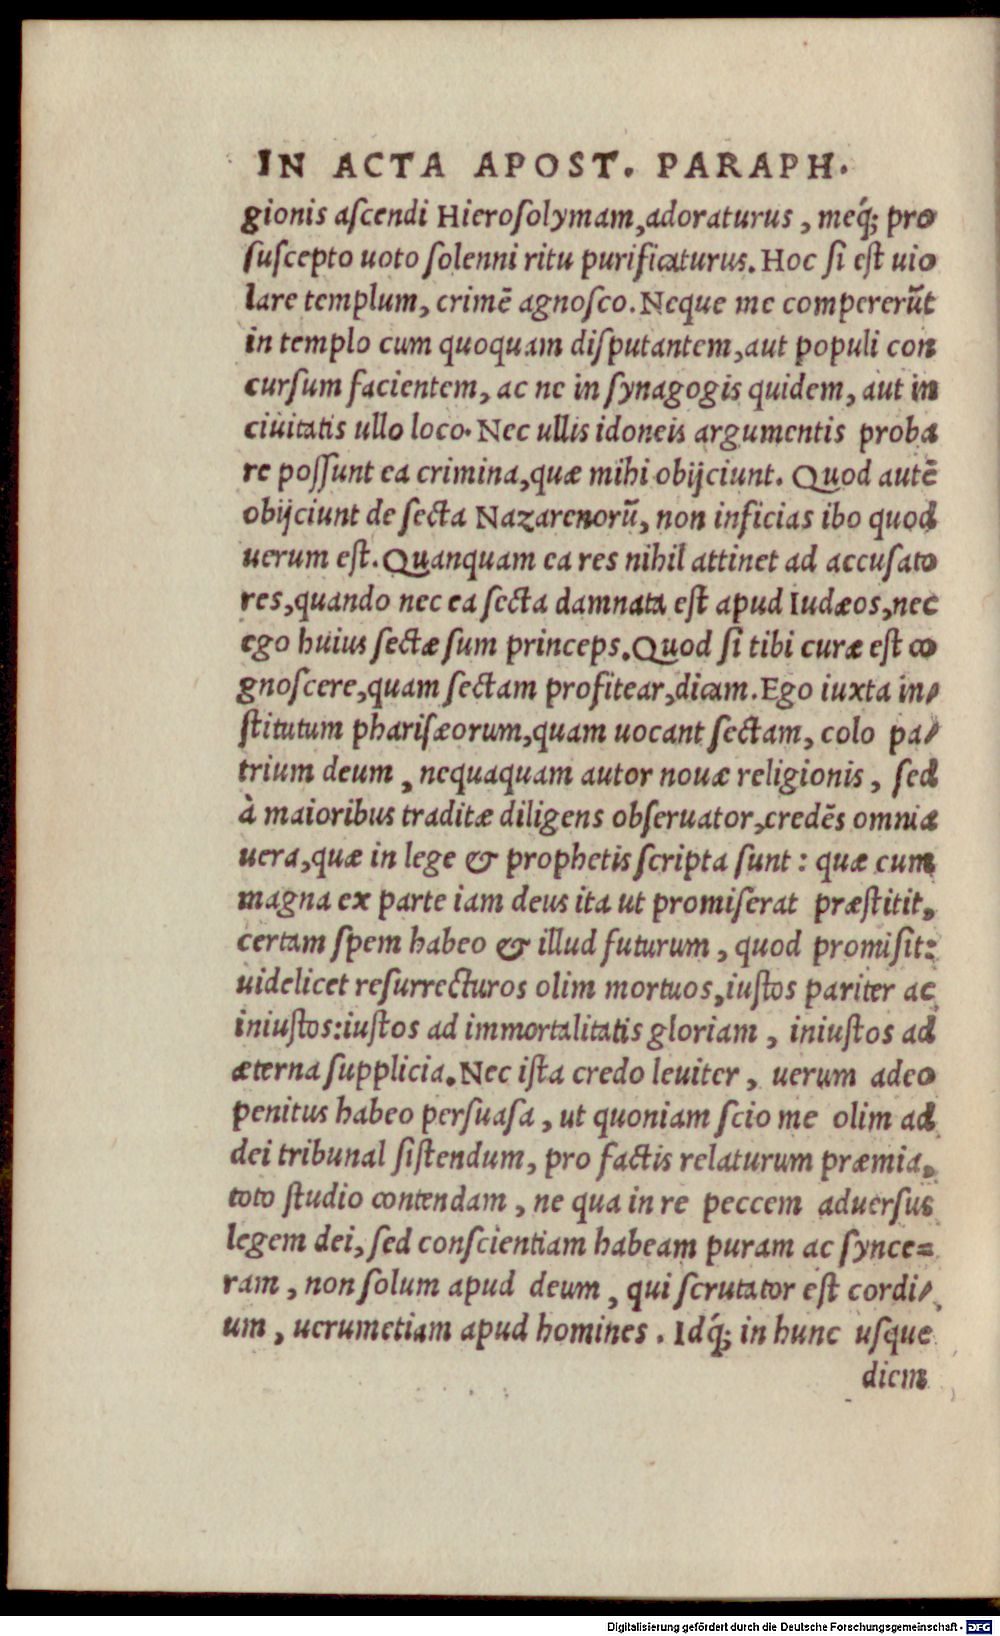 IN ACTA APOST. PARAPH.
gionis aſcendi Hieroſolymam, adoraturus, meq́; pro
ſuſcepto uoto ſolenni ritu purificaturus. Hoc ſi eſt uio
lare templum, crimē agnoſco. Neque me compererūt
in templo cum quoquam diſputantem, aut populi con
curſum facientem, ac ne in ſynagogis quidem, aut in
ciuitatis ullo loco. Nec ullis idoneis argumentis proba
re poſſunt ea crimina, quæ mihi obijciunt. Quod autē
obijciunt de ſecta Nazarenorū, non inficias ibo quod
uerum eſt. Quanquam ea res nihil attinet ad accuſato
res, quando nec ea ſecta damnata eſt apud Iudæos, nec
ego huius ſectæ ſum princeps. Quod ſi tibi curæ eſt co
gnoſcere, quam ſectam profitear, dicam. Ego iuxta in/
ſtitutum phariſæorum, quam uocant ſectam, colo pa/
trium deum, nequaquam autor nouæ religionis, ſed
à maioribus traditæ diligens obſeruator, credēs omnia
uera, quæ in lege & prophetis ſcripta ſunt: quæ cum
magna ex parte iam deus ita ut promiſerat præſtitit,
certam ſpem habeo & illud futurum, quod promiſit:
uidelicet reſurrecturos olim mortuos, iuſtos pariter ac
iniuſtos: iuſtos ad immortalitatis gloriam, iniuſtos ad
æterna ſupplicia. Nec iſta credo leuiter, uerum adeo
penitus habeo perſuaſa, ut quoniam ſcio me olim ad
dei tribunal ſiſtendum, pro factis relaturum præmia,
toto ſtudio contendam, ne qua in re peccem aduerſus
legem dei, ſed conſcientiam habeam puram ac ſynce=
ram, non ſolum apud deum, qui ſcrutator eſt cordi/
um, uerumetiam apud homines. Idq́; in hunc uſque
diem
Digitalisierung gefördert durch die Deutsche Forschungsgemeinschaft - DFG